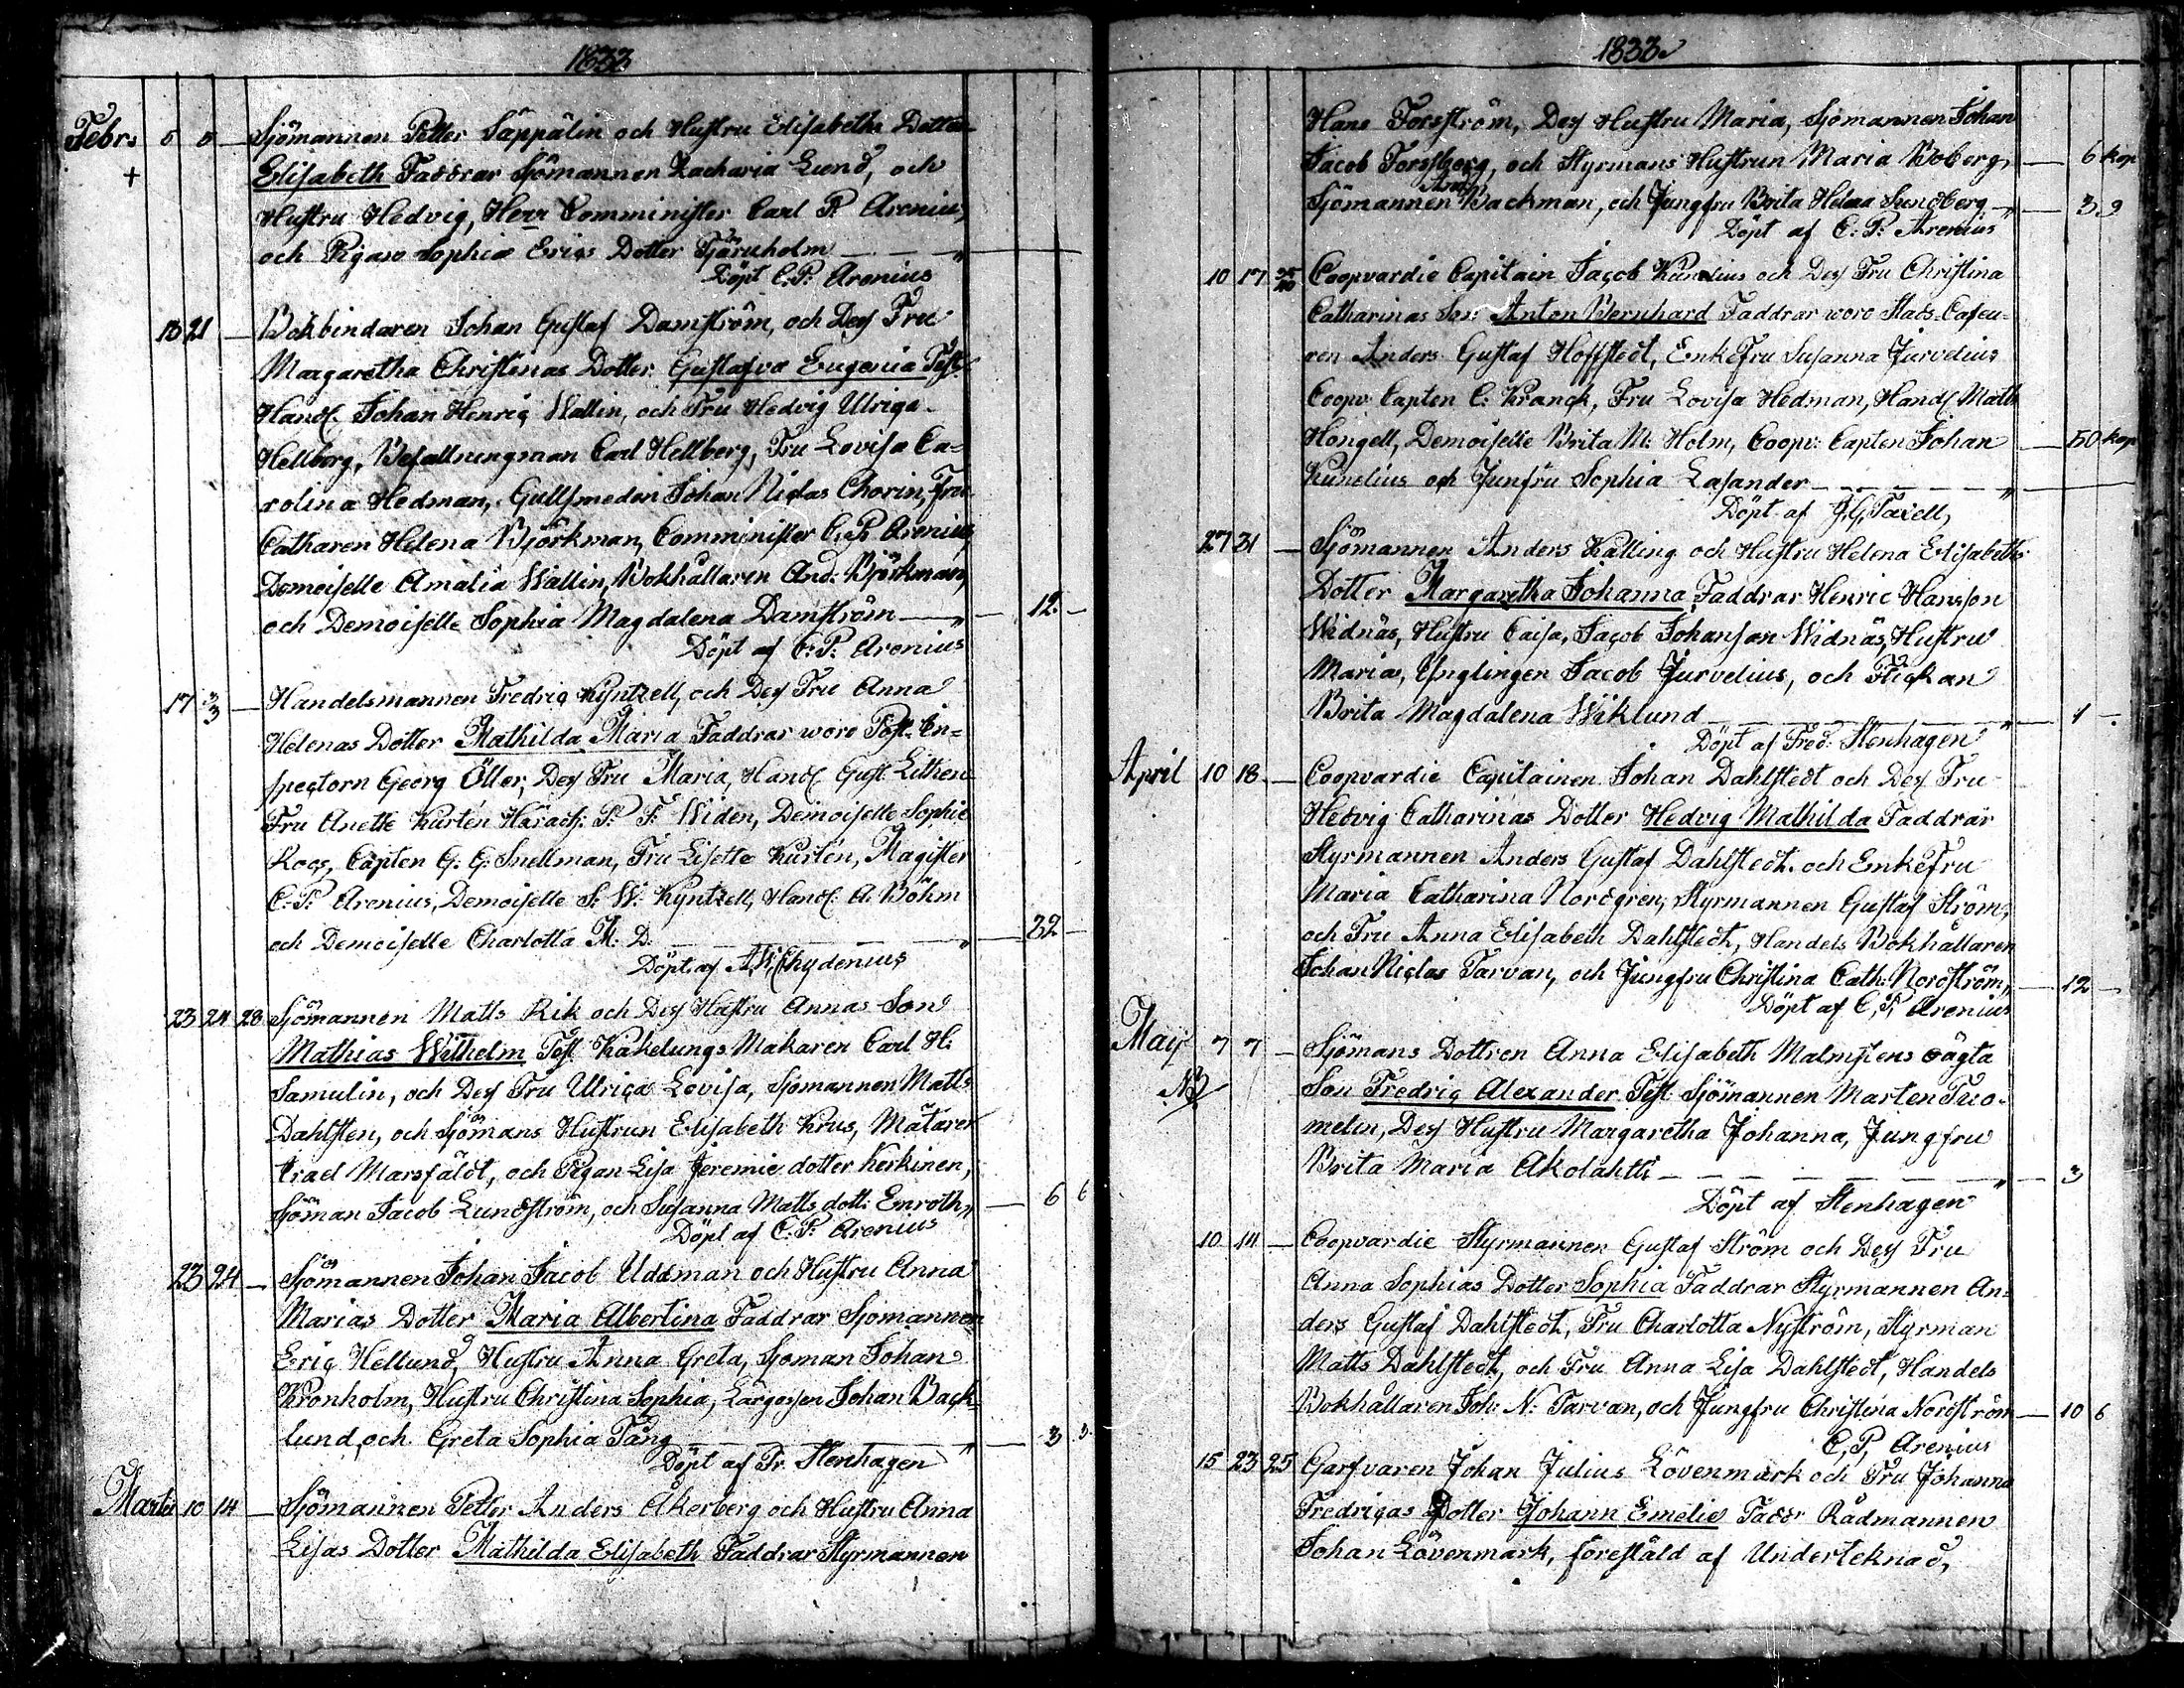 1833
Febr. 5 5 — Sjömannen Petter Säppälin och Hustru Elisabeths Dotter
+ Elisabeth Faddrar Sjömannen Zacharia Lund, och
Hustru Hedvig, Herr Comminister Carl P. Arenius,
och Pigan Sophia Erics Dotter Tjäruholm — — — "
Döpt C. P. Arenius
13 21 — Bokbindaren Johan Gustaf Damström, och Dess Fru
Margaretha Christinas Dotter Gustafva Eugenia Test.
Handl. Johan Henric Wallin, och Fru Hedvig Ulrica
Hellberg, Befallningman Carl Hellberg, Fru Lovisa Ca=
rolina Hedman, Gullsmeden Johan Niclas Chorin, Fru
Catharen Helena Björkman, Comminister C. P. Arenius,
Demoiselle Amalia Wallin, Bokhållaren And. Björkman,
och Demoiselle Sophia Magdalena Damström — " — 12 —
Döpt af C. P. Arenius
17 3/3 — Handelsmannen Fredric Kyntzell, och Dess Fru Anna
Helenas Dotter Mathilda Maria Faddrar woro Post-In=
spectorn Georg Öller, Dess Fru Maria, Handl. Gust. Lithen
Fru Anette Kurtén Häradsh. P. F. Widen, Demoiselle Sophie
Roos, Capten G. G. Snellman, Fru Lisette Kurtén, Magister
C. P. Arenius, Demoiselle S. W. Kyntzell, Handl. A. Böhm
och Demoiselle Charlotta M. D. — — — " — 22 —
Döpt af Chydenius
23 24 28 Sjömannen Matts Rik och Dess Hustru Annas Son
Mathias Wilhelm Test. Kakelungs Makaren Carl H.
Samulin, och Dess Fru Ulrica Lovisa, Sjömannen Matts
Dahlsten, och Sjömans Hustrun Elisabeth Krus, Mätaren
Israel Marsfäldt, och Pigan Lisa Jeremie dotter Kerkinen,
Sjöman Jacob Lundström, och Susanna Matts dott: Enroth " — 6 6
Döpt af C. P. Arenius
23 24 — Sjömannen Johan Jacob Uddman och Hustru Anna
Marias Dotter Maria Albertina Faddrar Sjömannen
Eric Hellund, Hustru Anna Greta, Sjöman Johan
Kronholm, Hustru Christina Sophia, Lärgossen Johan Back=
lund, och Greta Sophia Tång — — " — 3 3
Döpt af Fr. Stenhagen
Martii 10 14 — Sjömannen Petter Anders Åkerberg och Hustru Anna
Lisas Dotter Mathilda Elisabeth Faddrar Styrmannen
1833
Hans Forsström, Dess Hustru Maria, Sjömannen Johan
Jacob Forsberg, och Styrmans Hustrun Maria Boberg, — 6 kop
And:
Sjömannen Backman, och Jungfru Brita Helena Sundberg — 3. 9
Döpt af C. P. Arenius
10 17 Coopvardie Capitain Jacob Kunelius och Dess Fru Christina
Catharinas Son Anton Bernhard Faddrar woro Stads-Casseu=
ren Anders Gustaf Hoffstedt, EnkeFru Susanna Jurvelius
Coopv. Capten C. Kranck, Fru Lovisa Hedman, Handl. Matts
Hongell, Demoiselle Brita M. Holm, Coopv: Capten Johan — 50 kop
Kunelius och Junfru Sophia Lasander — — — "
Döpt af J. G. Taxell,
27 31 — Sjömannen Anders Kalling och Hustru Helena Elisabeths
Dotter Margaretha Johanna Faddrar Henric Hansson
Widnäs, Hustru Caisa, Jacob Johansson Widnäs, Hustru
Maria, Ynglingen Jacob Jurvelius, och Flickan
Brita Magdalena Wiklund — — — " — 1 —
Döpt af Fred: Stenhagen
April 10 18 — Coopvardie Capitainen Johan Dahlstedt och Dess Fru
Hedvig Catharinas Dotter Hedvig Mathilda Faddrar
Styrmannen Anders Gustaf Dahlstedt och EnkeFru
Maria Catharina Nordgren, Styrmannen Gustaf Ström,
och Fru Anna Elisabeth Dahlstedt, Handels Bokhållaren
Johan Niclas Tarvan, och Jungfru Christina Cath: Nordström, — 12 —
Döpt af C. P. Arenius
Maij 7 7 — Sjömans Dottren Anna Elisabeth Malmstens oägta
NB Son Fredric Alexander Test. Sjömannen Marten Tuo=
melin, Dess Hustru Margaretha Johanna, Jungfru
Brita Maria Akolahti — — — " — 3
Döpt af Stenhagen
10 14 — Coopvardie Styrmannen Gustaf Ström och Dess Fru
Anna Sophias Dotter Sophia Faddrar Styrmannen An=
ders Gustaf Dahlstedt, Fru Charlotta Nyström, Styrman
Matts Dahlstedt, och Fru Anna Lisa Dahlstedt, Handels
Bokhållaren Joh: N. Tarvan, och Jungfru Christina Nordström — 10 6
C. P. Arenius
15 23 25 Garfvaren Johan Julius Lövenmark och Fru Johanna
Fredricas Dotter Johann Emelie Faddr Rådmannen
Johan Lövenmark, föreställd af Underteknad,